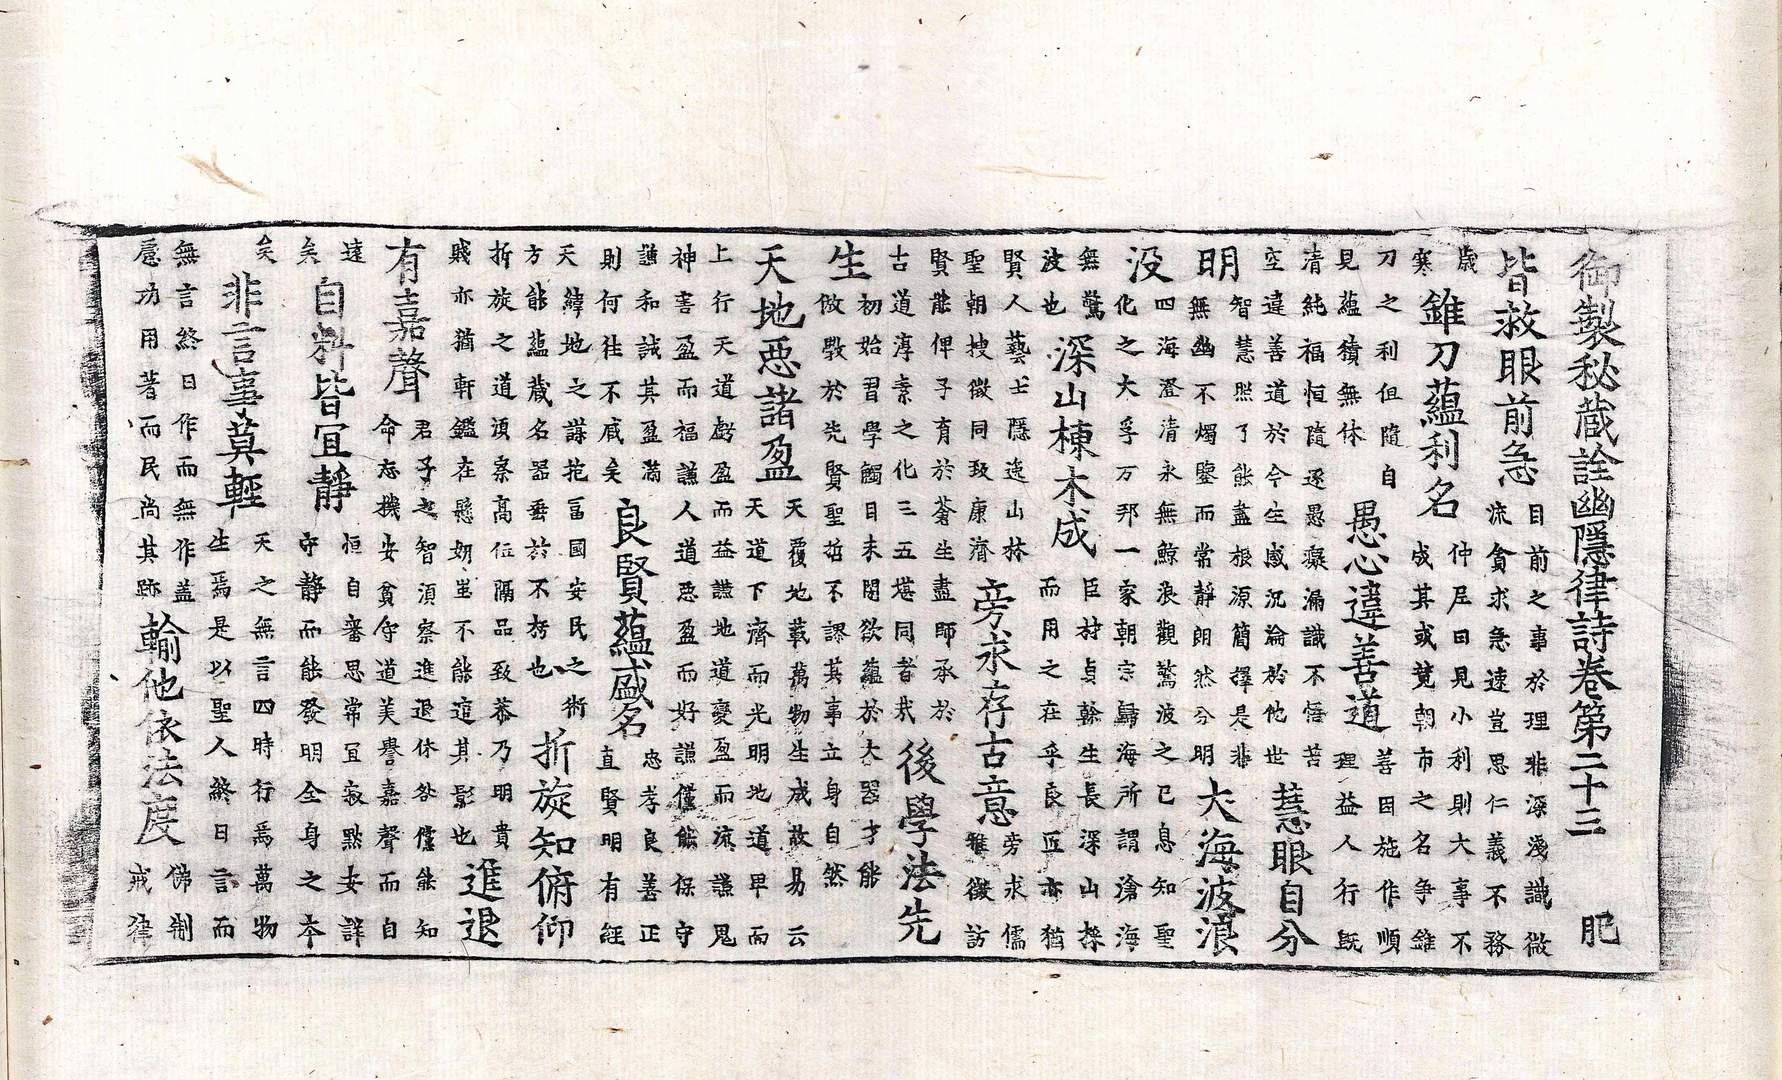 御製秘蔵詮幽隱律詩卷第二十三 肥
皆救眼前急
目前之事於理非深淺識微
流貪求急速豈思仁義不務
歲
寒
錐刀蘊利名
仲尼曰見小利則大事不
成其或競朝市之名爭錐
刀之利但隨自
見蘊積無休
愚心違善道
善因施作順
理益人行既
清純福恒隨逐愚癡漏識不悟苦
空違善道於今生感沉淪於他世
慧眼自分
明
智慧照了能盡根源簡擇是非
無幽不燭鑒而常靜朗然分明
大海波浪
没
四海澄清永無鯨浪觀鷲波之已息知聖
化之大孚万邦一家朝宗歸海所謂滄海
無驚
波也
深山棟木成
臣材貞幹生長深山採
而用之在乎良匠亦猶
賢人藝士隱迹山林
聖朝搜徵同致康濟
旁求存古意
旁求儒
雅徵訪
賢能俾子育於蒼生盡師承於
古道淳素之化三五堪同者哉
後學法先
生
初始君學觸目未閑欲蘊於大器才能
倣斆於先賢聖哲不謬其事立身自然
天地惡諸盈
天覆地載萬物生成故易云
天道下濟而光明地道卑而
上行天道虧盈而益謙地道變盈而流謙鬼
神害盈而福謙人道惡盈而好謙僅能保守
謙和誠其盈滿
則何往不咸矣
良賢蘊盛名
忠孝良善正
直賢明有經
天緯地之謀苞冨國安民之術
方能蘊蔵名器垂於不朽也
折旋知俯仰
折旋之道須察高位隔品致恭乃明貴
賤亦猶軒鑑在懸妍蚩不能逭其影也
進退
有嘉聲
君子之智須察進退休咎僅能知
命忘機安貧守道美譽嘉聲而自
遠
矣
自料皆冝靜
恒自審思常冝寂黙安詳
守靜而能發明全身之本
矣
非言事莫輕
天之無言四時行焉萬物
生焉是以聖人終日言而
無言終日作而無作蓋
隱功用著而民尚其跡
輸他依法度
佛制
戒律